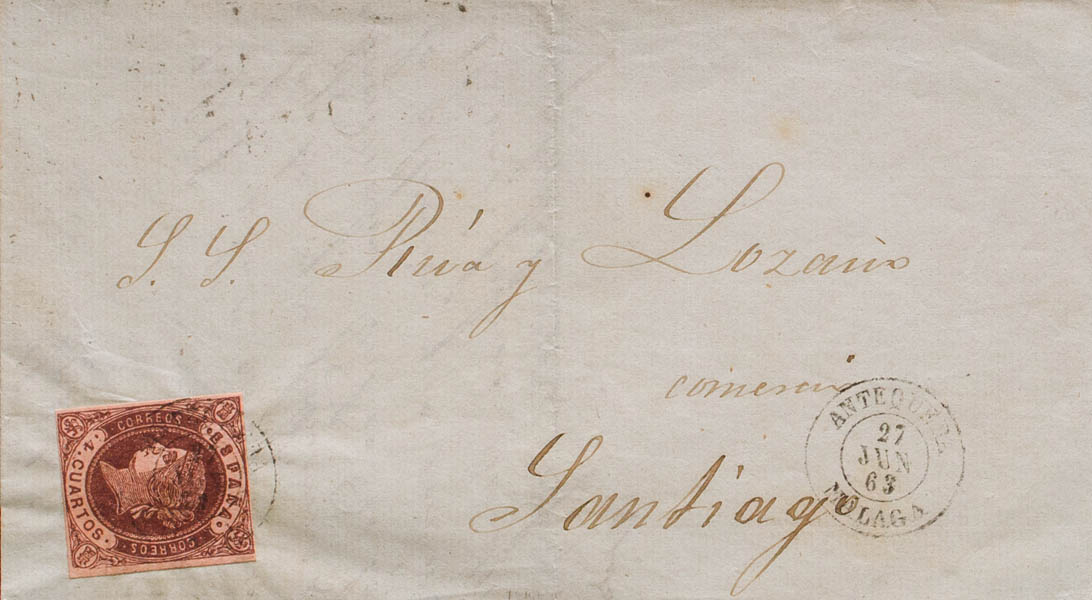 S. S. Rúa y Lozano
comercio
Santiago
ANTEQUERA
27
JUN
63
MALAGA
CORREOS
ESPAÑA
4 CUARTOS
CORREOS